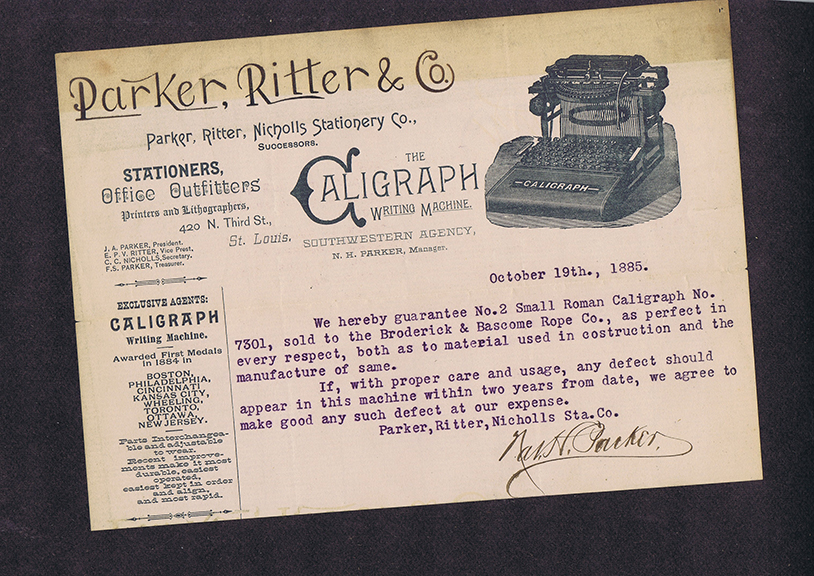 Parker, Ritter & Co.
Parker, Ritter, Nicholls Stationery Co.,
Successors.
STATIONERS,
Office Outfitters
Printers and Lithographers,
420 N. Third St.,
St. Louis.
J. A. PARKER, President.
E. P. V. RITTER, Vice Prest.
C. C. NICHOLLS, Secretary.
F. S. PARKER, Treasurer.
THE
CALIGRAPH
WRITING MACHINE.
SOUTHWESTERN AGENCY,
N. H. PARKER, Manager.
CALIGRAPH
EXCLUSIVE AGENTS:
CALIGRAPH
Writing Machine.
Awarded First Medals
in 1884 in
BOSTON,
PHILADELPHIA,
CINCINNATI
KANSAS CITY,
WHEELING,
TORONTO,
OTTAWA,
NEW JERSEY.
Parts Interchangea-
ble and adjustable
to wear.
Recent improve-
ments make it most
durable, easiest
operated,
easiest kept in order
and align,
and most rapid.
October 19th., 1885.
We hereby guarantee No.2 Small Roman Caligraph No.
7301, sold to the Broderick & Bascome Rope Co., as perfect in
every respect, both as to material used in costruction and the
manufacture of same.
If, with proper care and usage, any defect should
appear in this machine within two years from date, we agree to
make good any such defect at our expense.
Parker,Ritter,Nicholls Sta.Co.
Nat H. Parker.